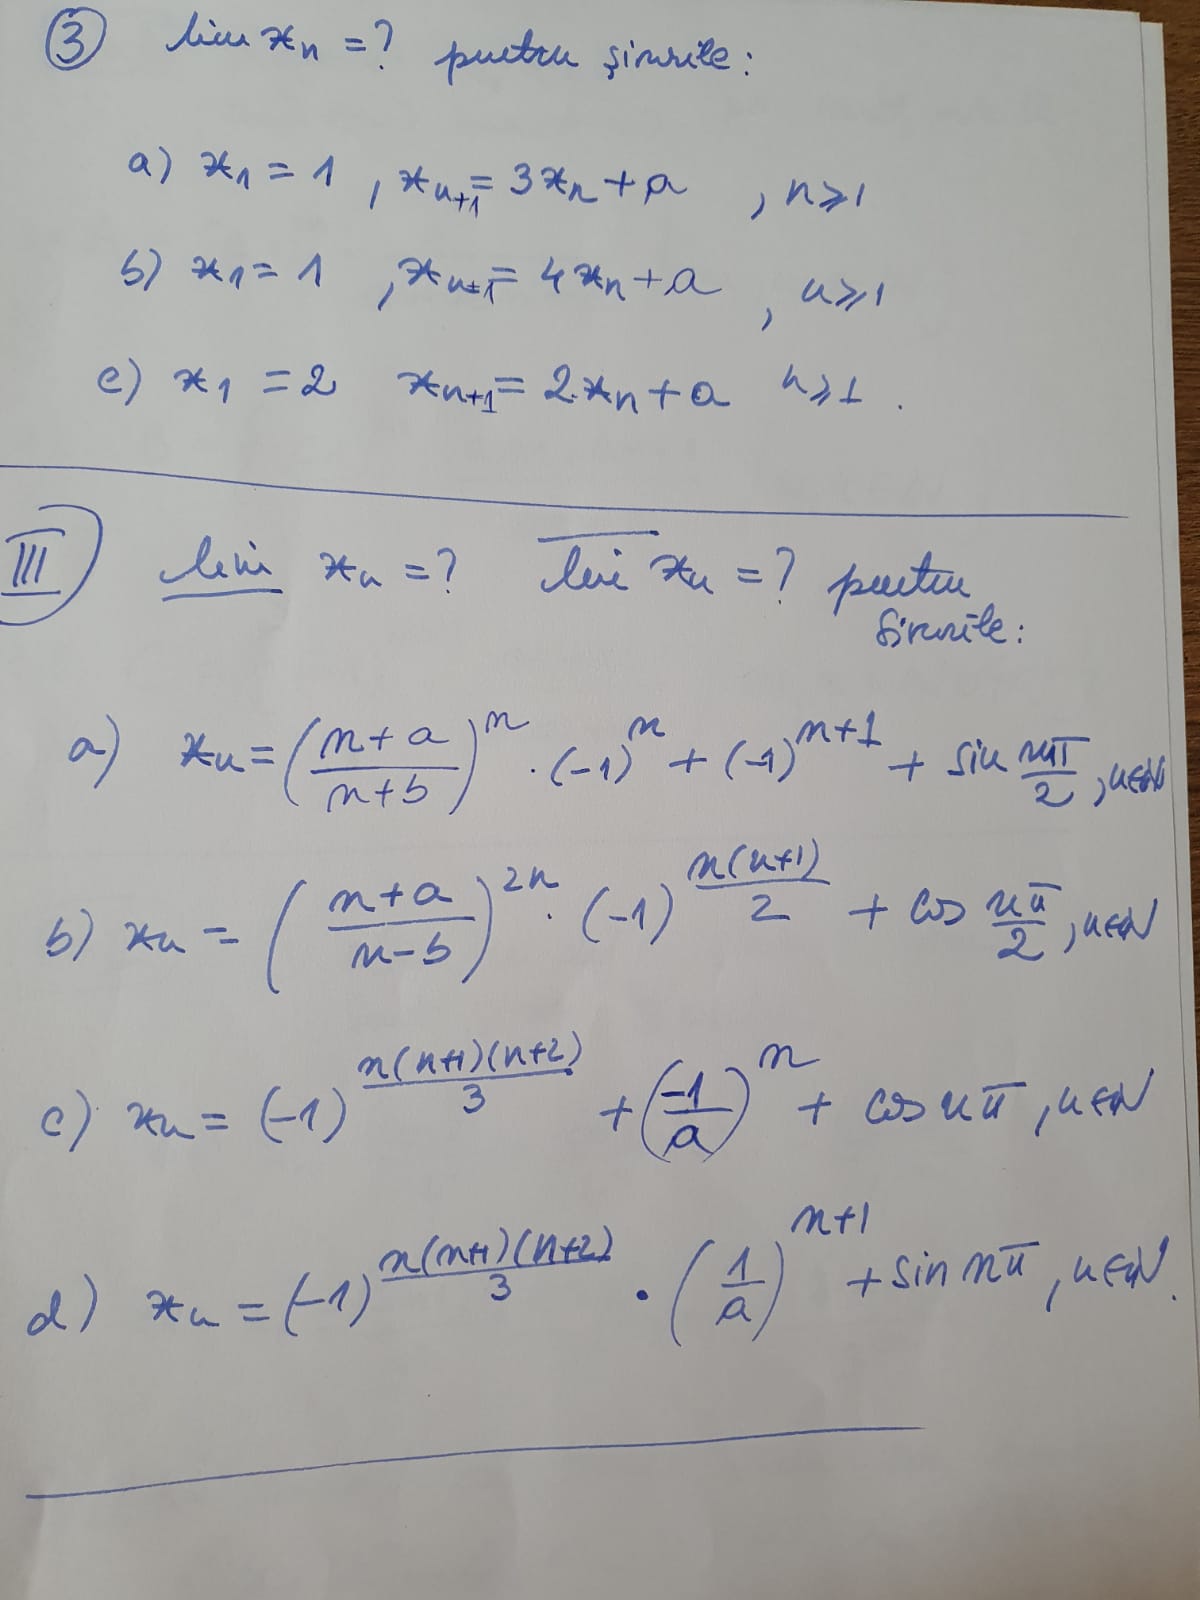 ③ lim xₙ = ? pentru șirurile:
a) x₁ = 1 , xₙ₊₁ = 3xₙ + a , n ⩾ 1
b) x₁ = 1 , xₙ₊₁ = 4xₙ + a , n ⩾ 1
c) x₁ = 2 xₙ₊₁ = 2·xₙ + a n ⩾ 1 .
III) \underline{lim} xₙ = ? \overline{lim} xₙ = ? pentru
șirurile:
a) xₙ = ((n+a)/(n+b))^n · (-1)^n + (-1)^{n+1} + sin nπ/2 , n∈ℕ
b) xₙ = ((n+a)/(n-b))^{2n} · (-1)^{n(n+1)/2} + cos nπ/2 , n∈ℕ
c) xₙ = (-1)^{n(n+1)(n+2)/3} + (-1/a)^n + cos nπ , n∈ℕ
d) xₙ = (-1)^{n(n+1)(n+2)/3} · (1/a)^{n+1} + sin nπ , n∈ℕ.